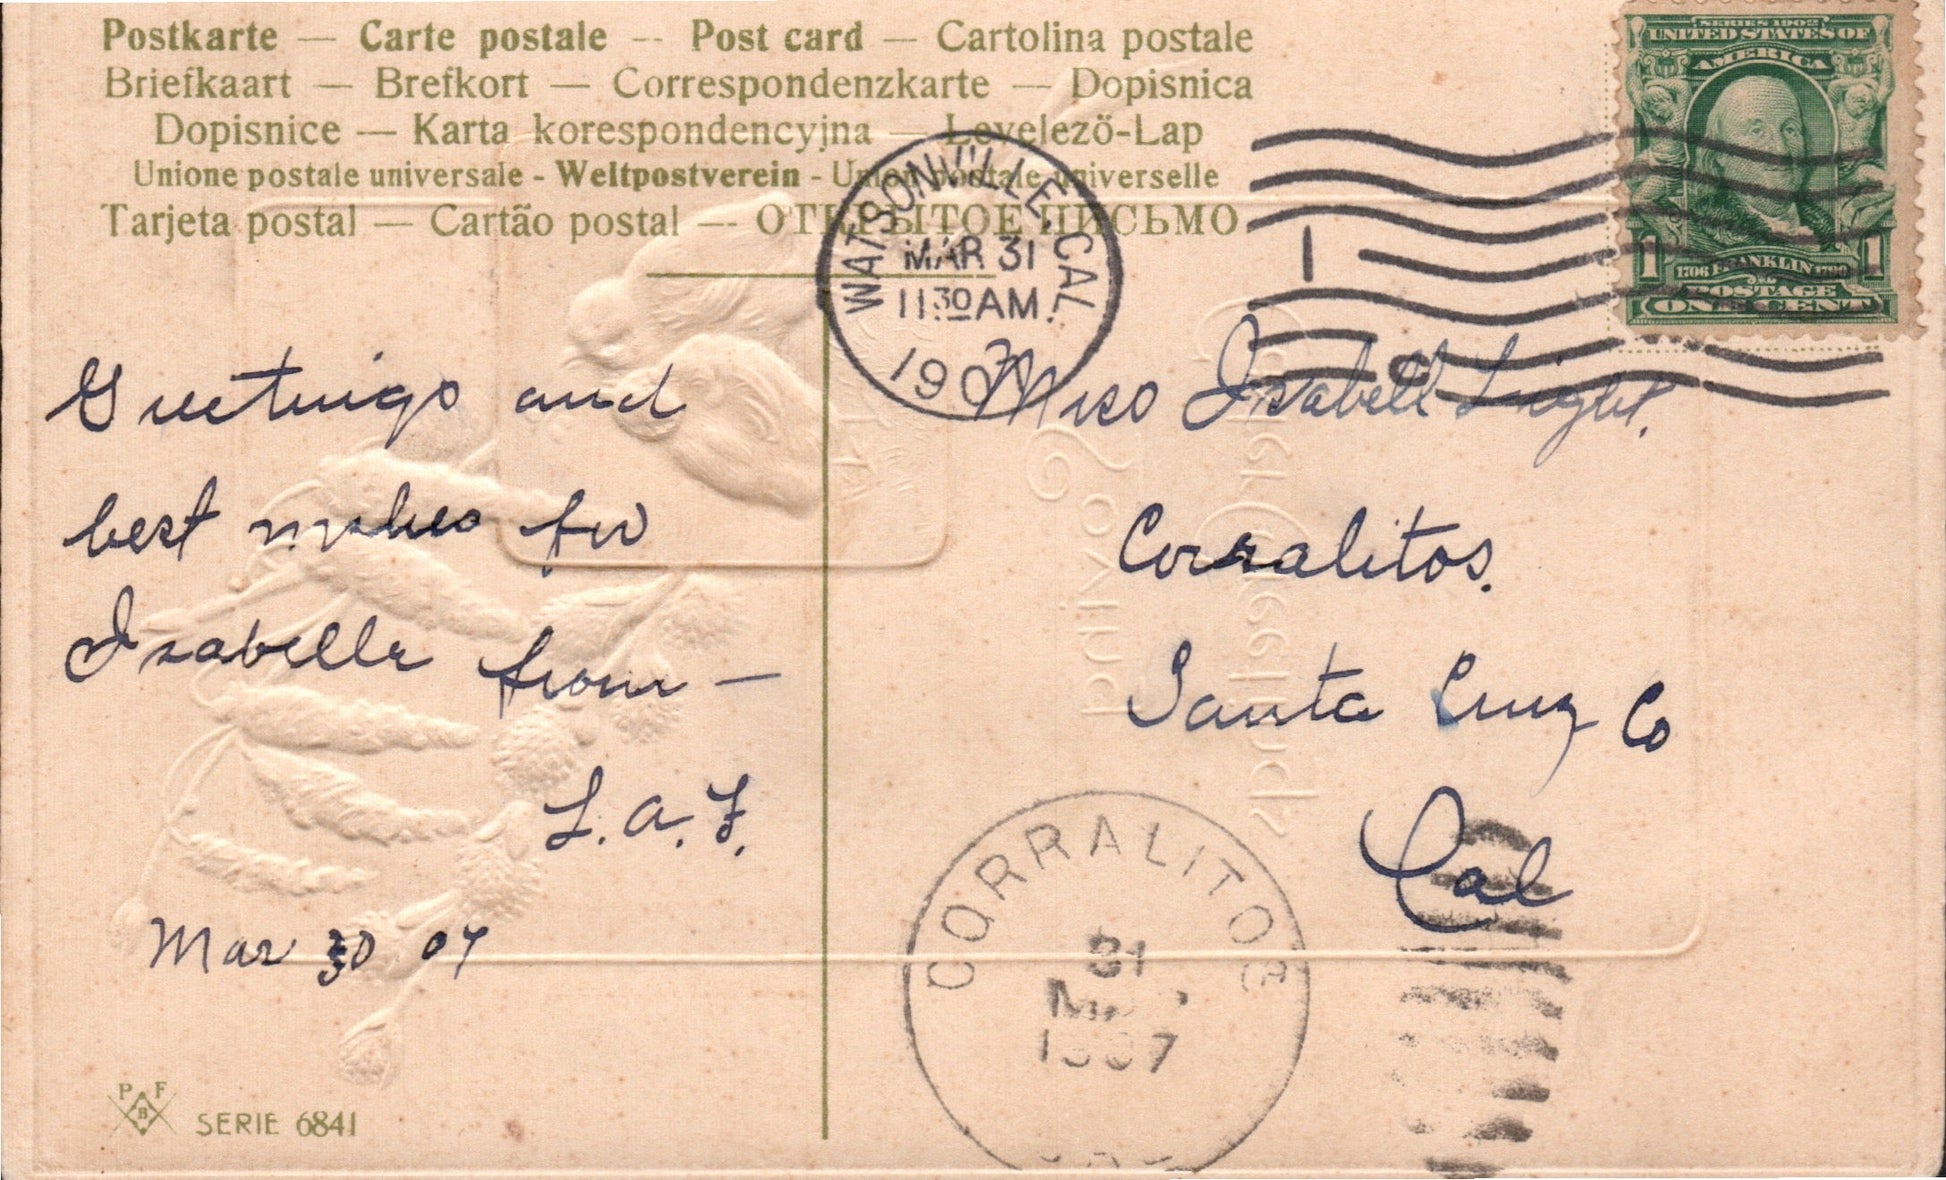 Postkarte — Carte postale -- Post card — Cartolina postale
Briefkaart — Brefkort — Correspondenzkarte — Dopisnica
Dopisnice — Karta korespondencyjna — Levelező-Lap
Unione postale universale - Weltpostverein - Union postale universelle
Tarjeta postal — Cartão postal -- ОТКРЫТОЕ ПИСЬМО.
SERIES 1902
UNITED STATES OF
AMERICA
1 1
1706 FRANKLIN 1790
POSTAGE
ONE CENT
WATSONVILLE, CAL.
MAR 31
11 30 AM.
1907
1
Greetings and
best wishes for
Isabelle from —
L. A. F.
Mar 30 07
Miss Isabell Light.
Corralitos.
Santa Cruz Co
Cal
CORRALITOS
31
MAR
1907
P F
B
SERIE 6841